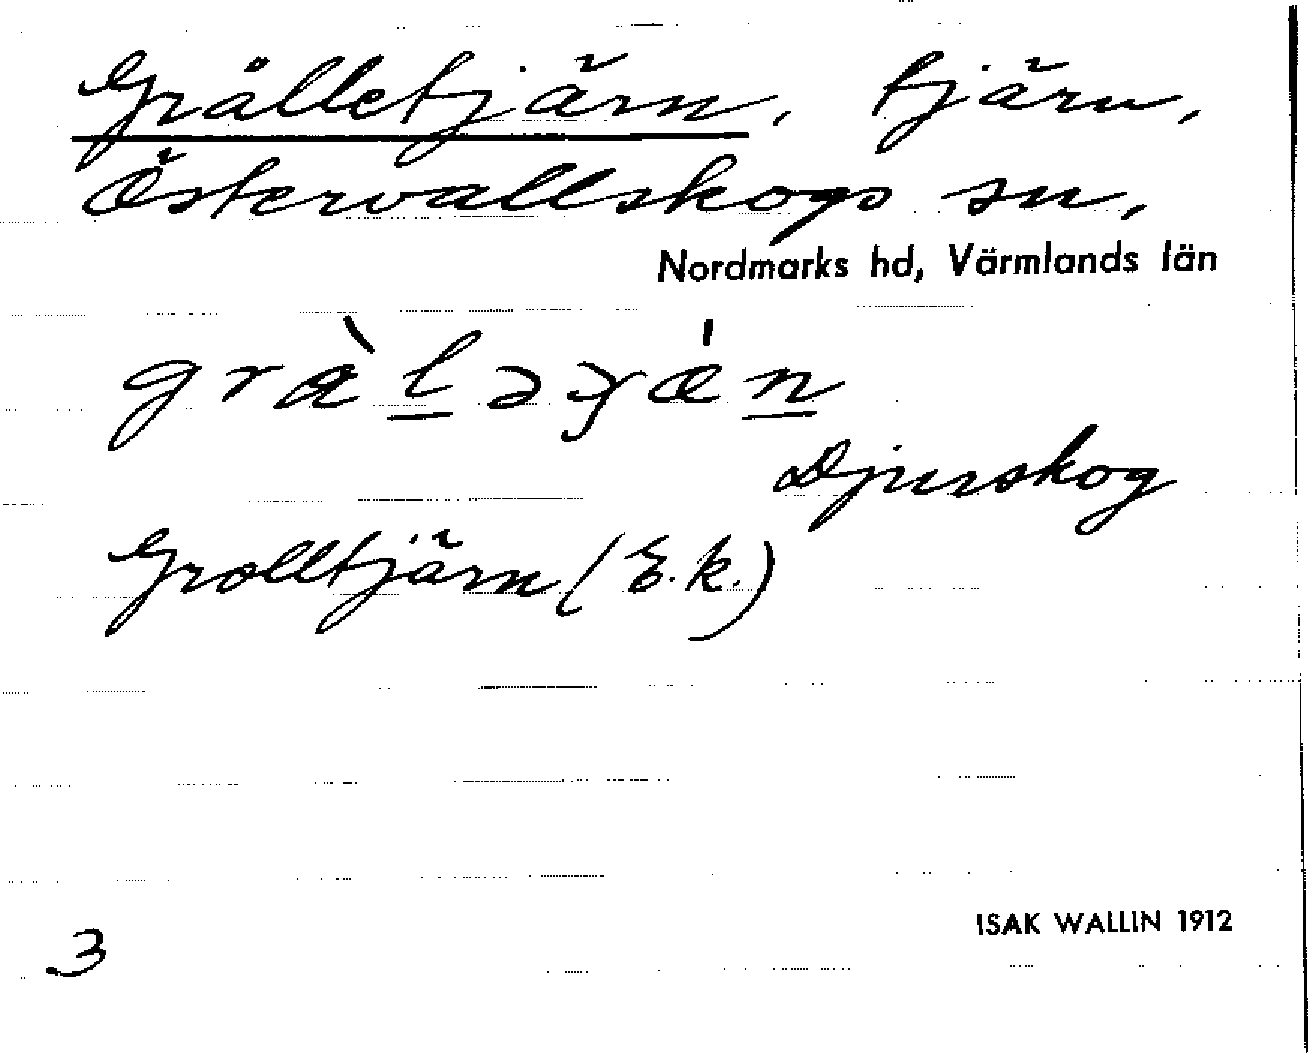 Grålletjärn, tjärn,
Östervallskogs sn,
Nordmarks hd, Värmlands län
Djurskog
Grolltjärn (E.k.)
ISAK WALLIN 1912
3